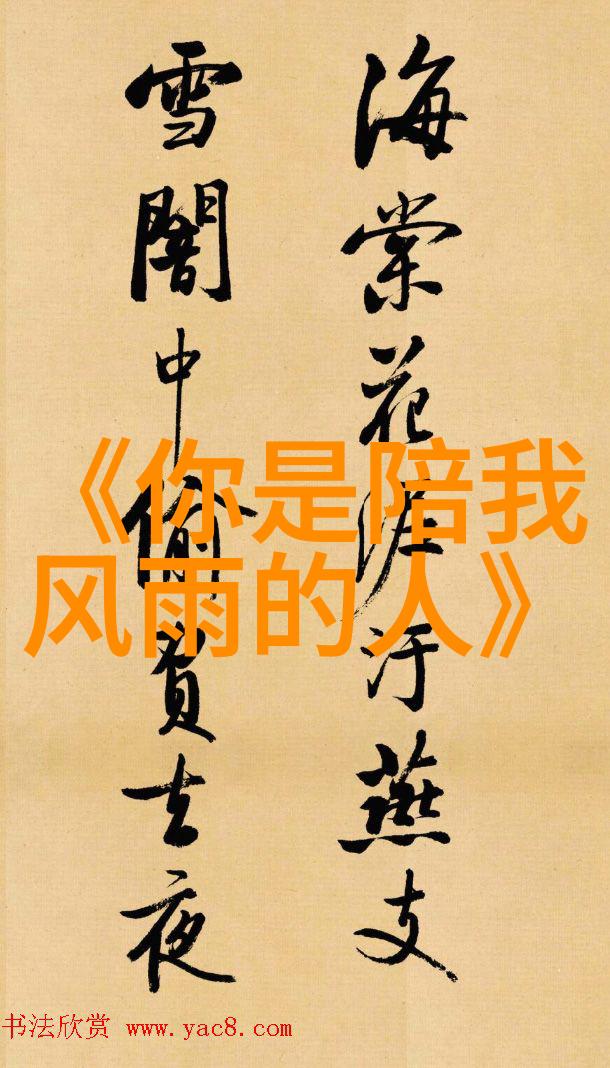 海棠花泥汙燕支
雪闇中偷負去夜
《你是陪我
风雨的人》
书法欣赏 www.yac8.com